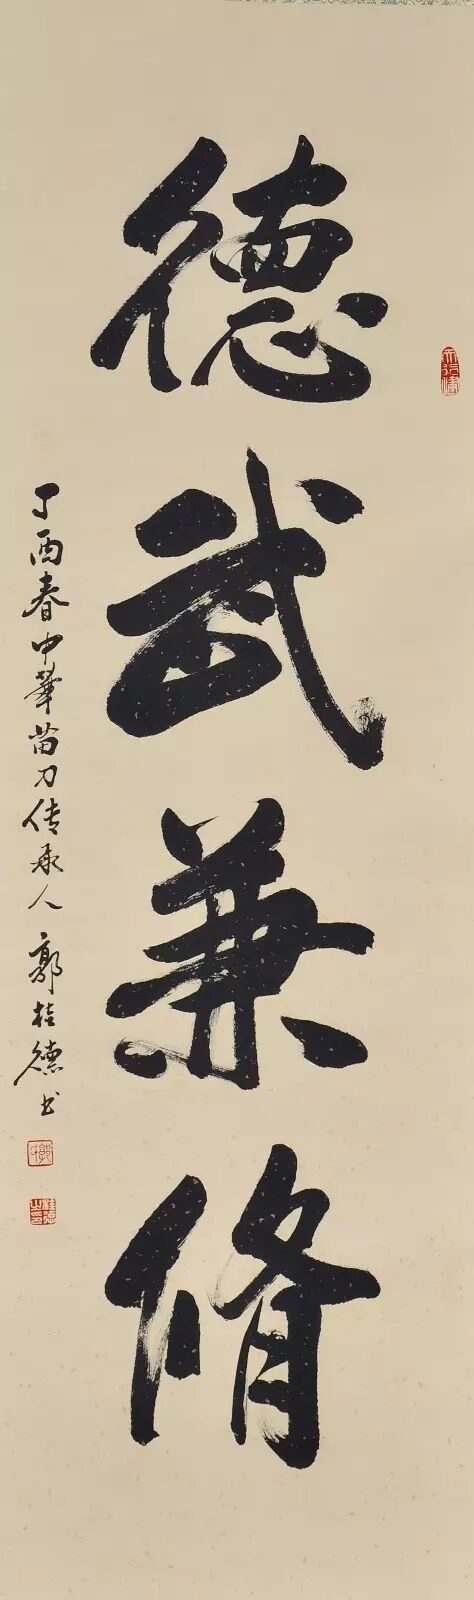 德武兼脩
丁酉春中華苗刀传承人郭桂德书